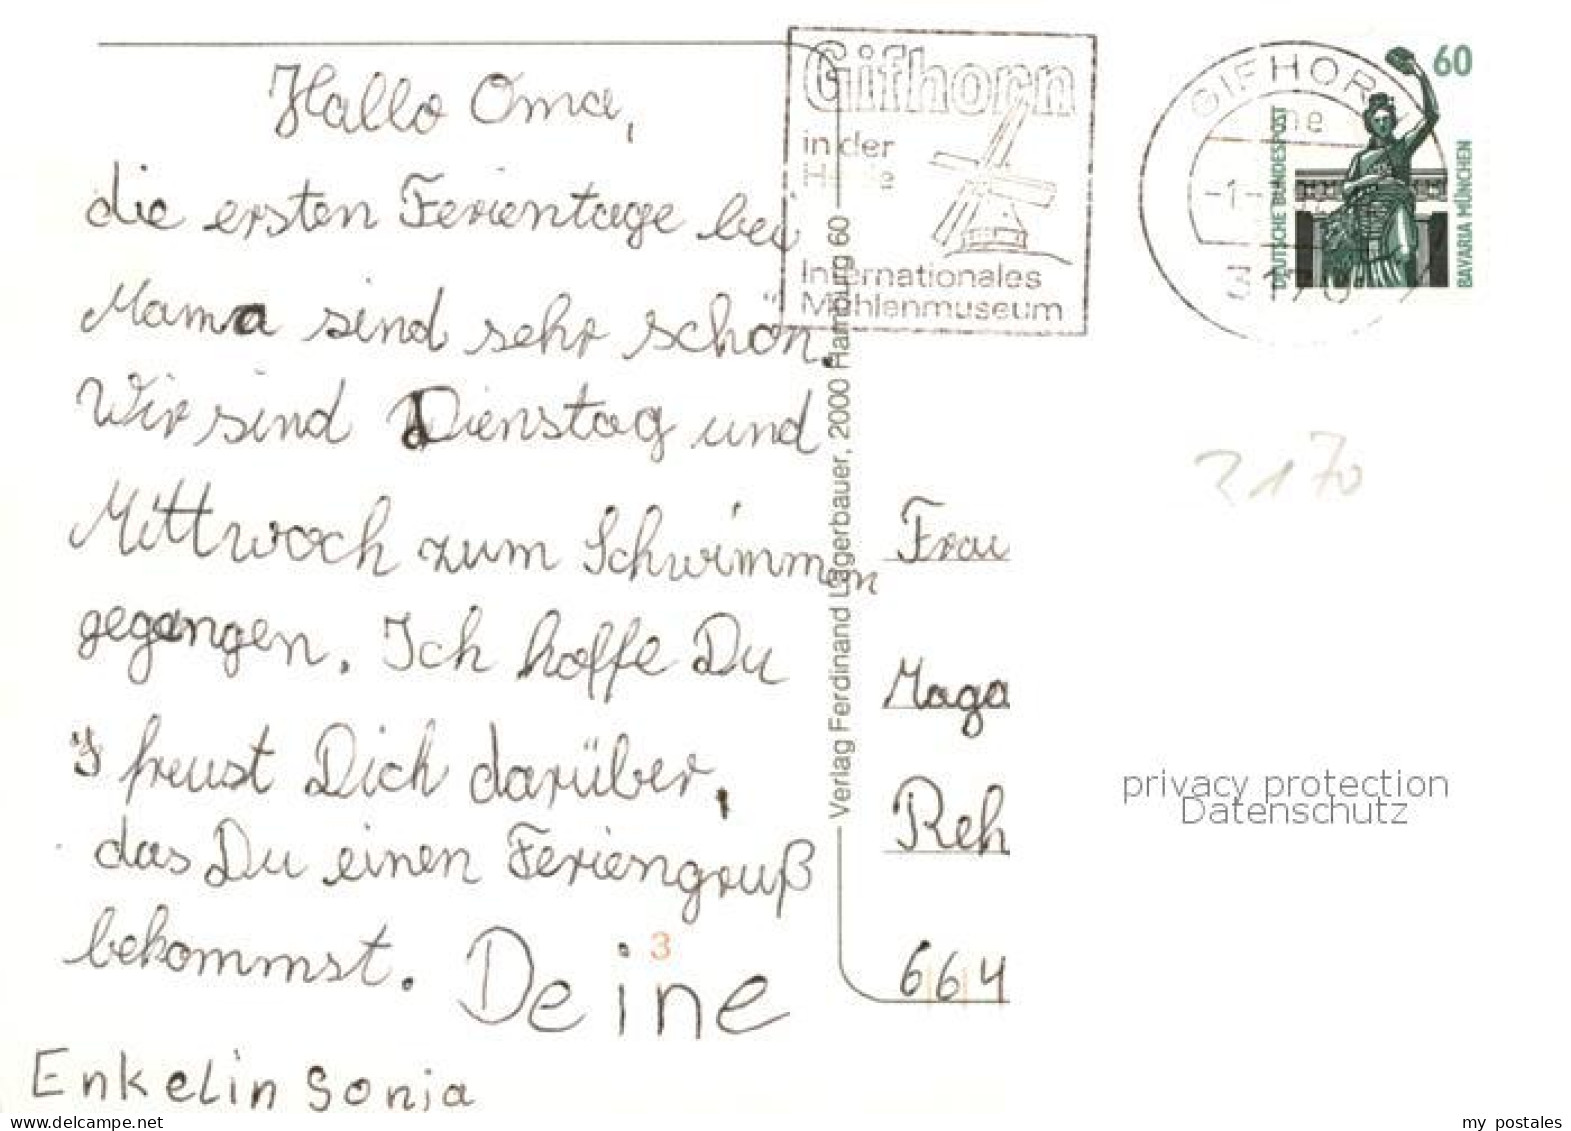 Hallo Oma,
die ersten Ferientage bei
Mama sind sehr schön.
Wir sind Dienstag und
Mittwoch zum Schwimmen
gegangen. Ich hoffe Du
freust Dich darüber,
das Du einen Feriengruß
bekommst. Deine
Enkelin Sonja
3
Gifhorn
in der
Internationales
Mühlenmuseum
GIFHORN
60
DEUTSCHE BUNDESPOST
BAVARIA MÜNCHEN
Verlag Ferdinand Lagerbauer, 2000 Hamburg 60
3170
Frau
Maga
Reh
664
privacy protection
Datenschutz
www.delcampe.net
my_postales